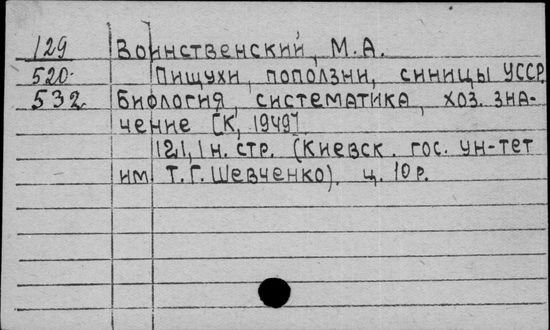 129 Воинственский, М.А.
520. Пищухи, поползни, синицы УССР
532. Биология, систематика, хоз. зна-
чение [К, 1949].
121, 1 н. стр. (Киевск. гос. ун-тет
им. Т.Г. Шевченко). ц. 10 р.